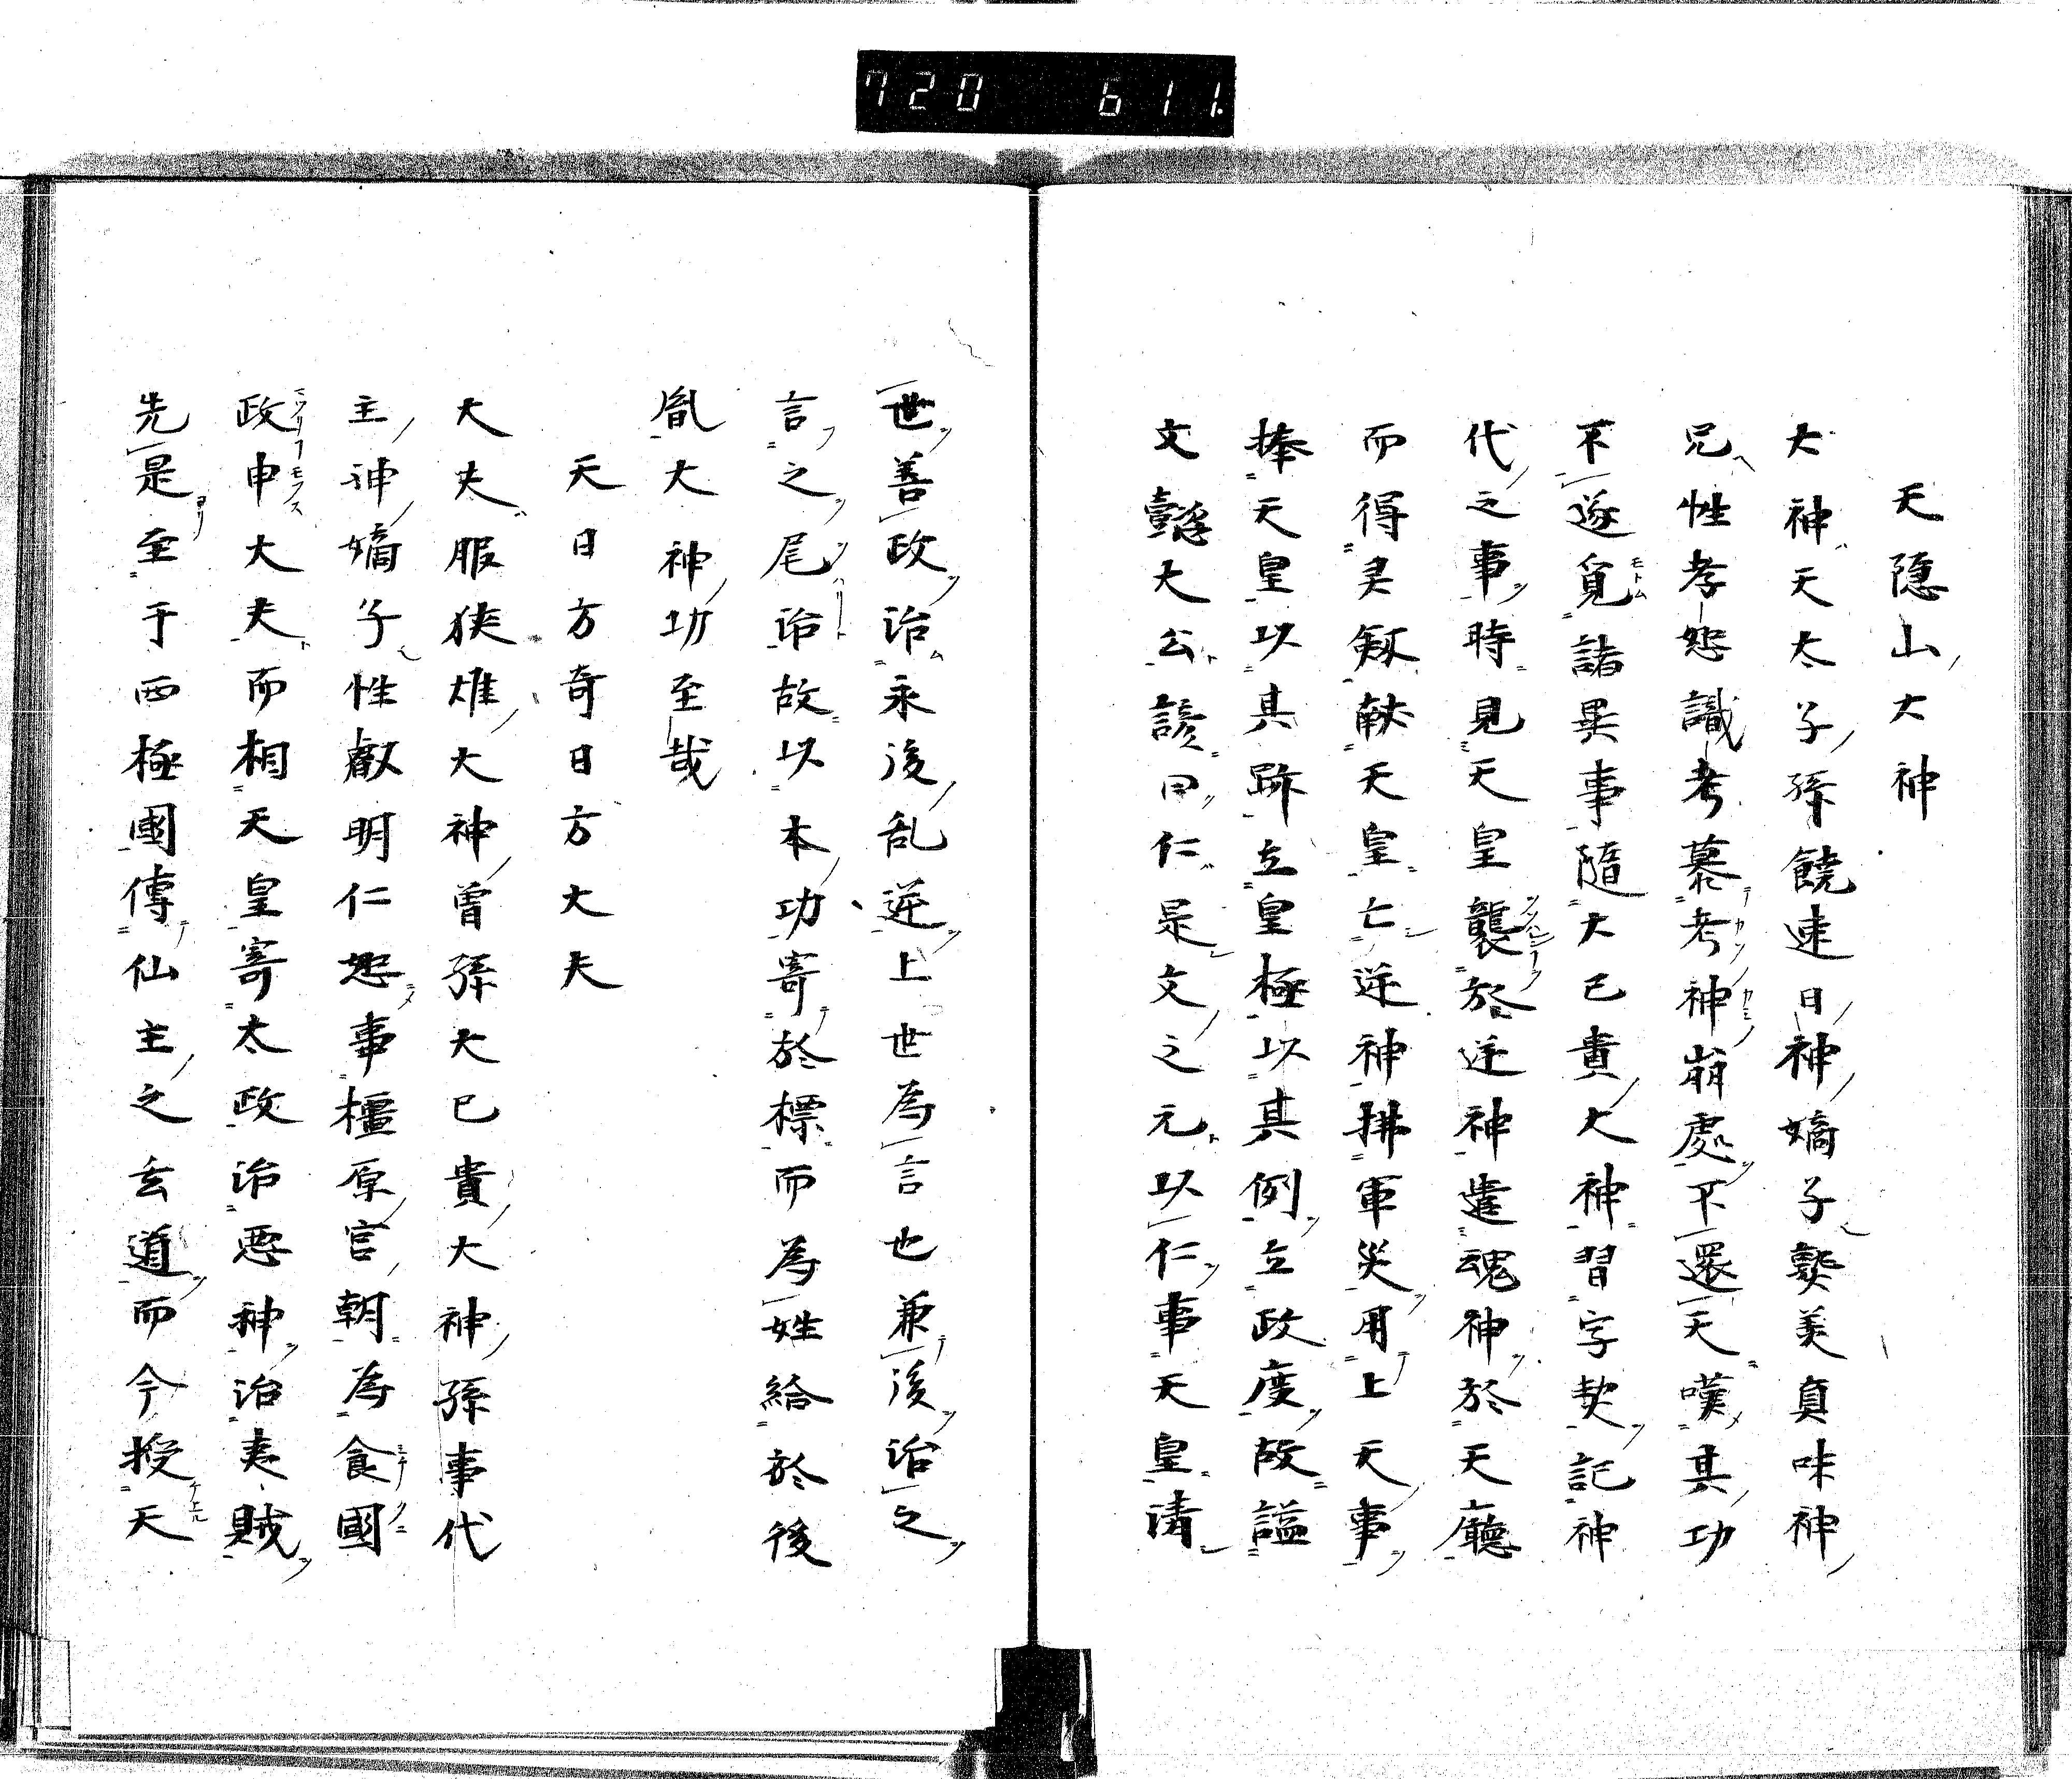 720 611.
天隠山大神
大神天太子孫饒速日神嫡子美真味神
兄性孝恕識考慕考神崩處不還天嘆其功
不遂覓諸異事隨大己貴大神習字契記神
代之事時見天皇襲於逆神遣魂神於天廳
而得灵剱献天皇亡逆神拂軍災用上天事
捧天皇以其跡立皇極以其例立政度故諡
文懿大公諺曰仁是文之元以仁事天皇清
世善政治永後乱逆上世為言也兼後治之
言之尾治故以本功寄於標而為姓給於後
胤大神功至哉
天日方奇日方大夫
大夫服狭雄大神曽孫大己貴大神孫事代
主神嫡子性叡明仁恕事橿原宮朝為食國
政申大夫而相天皇寄太政治悪神治夷賊
先是至于西極國傳仙主之玄道而今授天